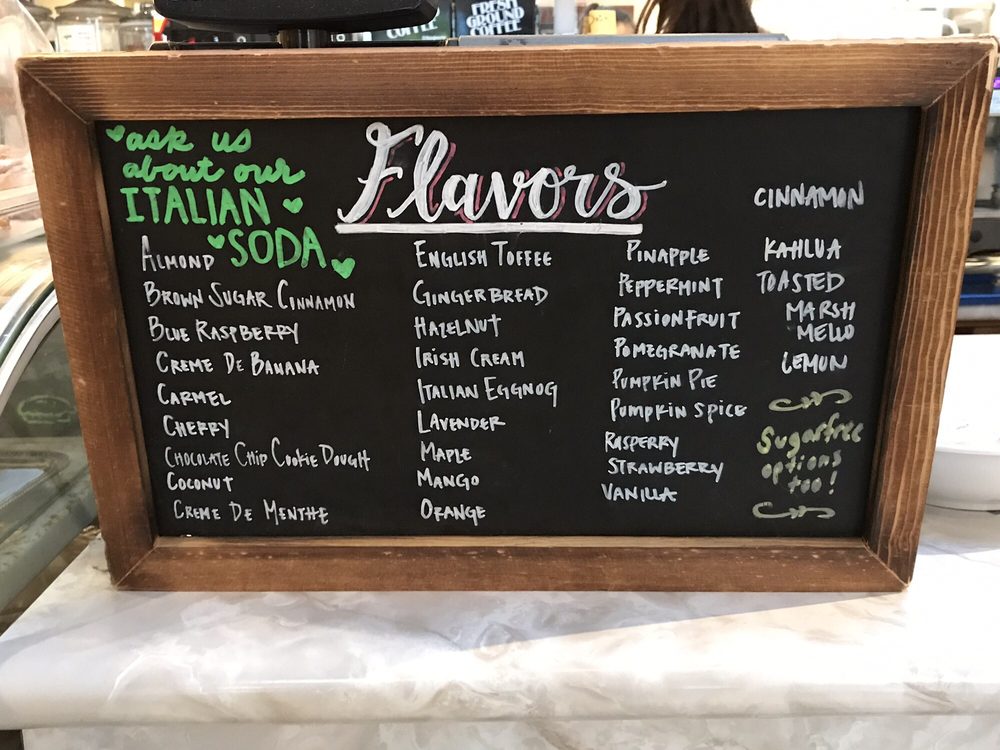 FRESH
GROUND
COFFEE
COFFEE
ask us
about our
ITALIAN
SODA
Flavors
ALMOND
BROWN SUGAR CINNAMON
BLUE RASPBERRY
CREME DE BANANA
CARMEL
CHERRY
CHOCOLATE CHIP COOKIE DOUGH
COCONUT
CREME DE MENTHE
ENGLISH TOFFEE
GINGERBREAD
HAZELNUT
IRISH CREAM
ITALIAN EGGNOG
LAVENDER
MAPLE
MANGO
ORANGE
PINAPPLE
PEPPERMINT
PASSIONFRUIT
POMEGRANATE
PUMPKIN PIE
PUMPKIN SPICE
RASPERRY
STRAWBERRY
VANILLA
CINNAMON
KAHLUA
TOASTED
MARSH
MELLO
LEMON
Sugarfree
options
too!